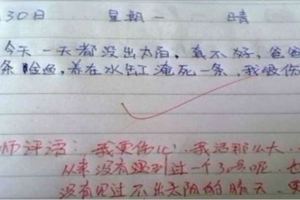 30日 星期一 晴
今天一天都没出太阳,真不好,爸爸
条金鱼,养在水缸淹死一条,我很伤
师评语:我更伤心,我活那么大
从来没有遇到过一个30号呢,也
没有见过不出太阳的晴天,更